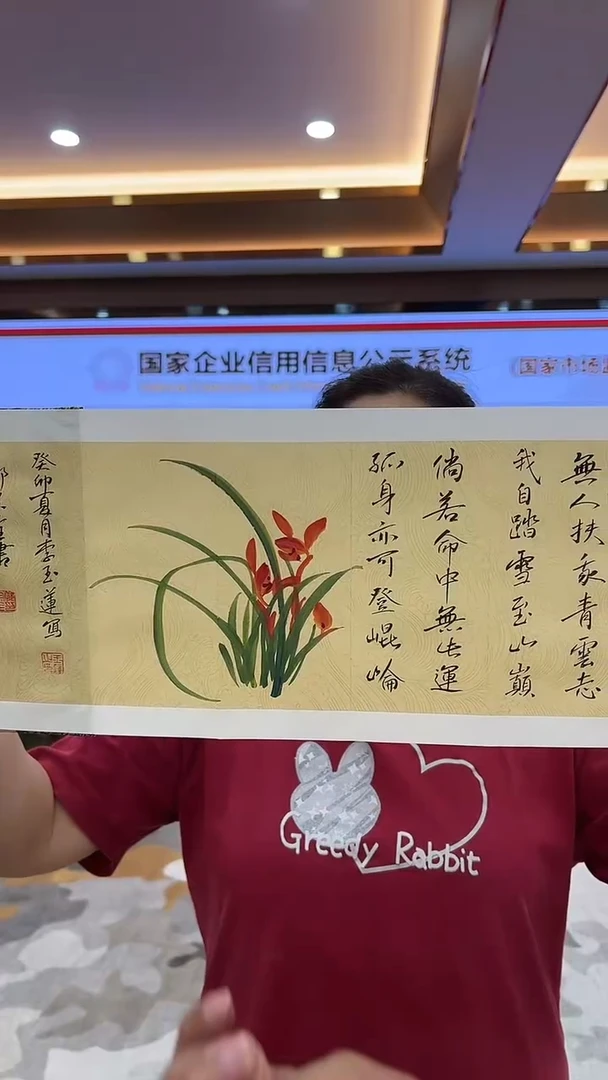 国家企业信用信息公示系统
国家市场监
無人扶我青雲志
我自踏雪至山巔
倘若命中無此運
孤身亦可登崐崘
癸卯夏月李玉蓮寫
書
Greedy Rabbit